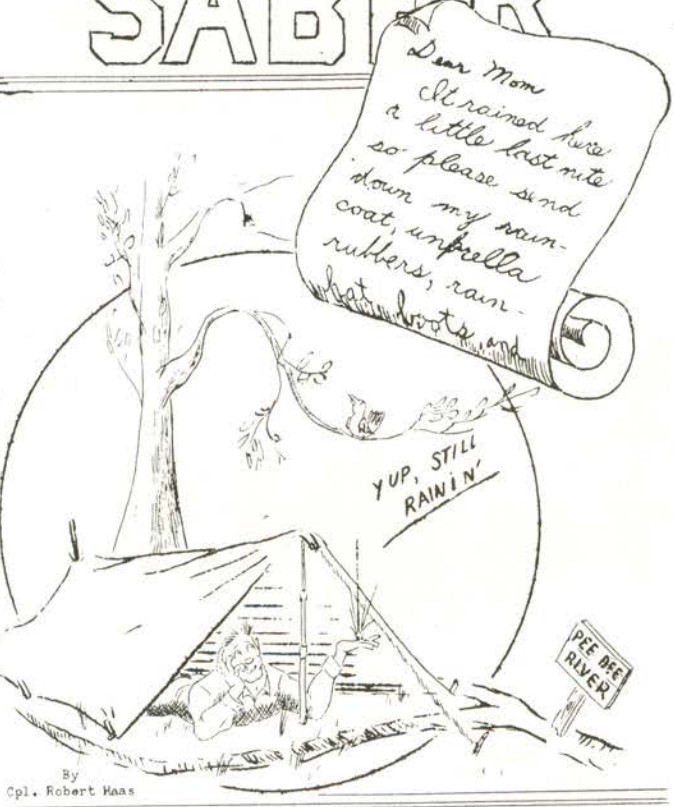 SABER
Dear Mom
It rained here
a little last nite
so please send
down my rain-
coat, unbrella
rubbers, rain-
hat, boots, and
YUP, STILL
RAININ'
PEE DEE
RIVER
By
Cpl. Robert Haas